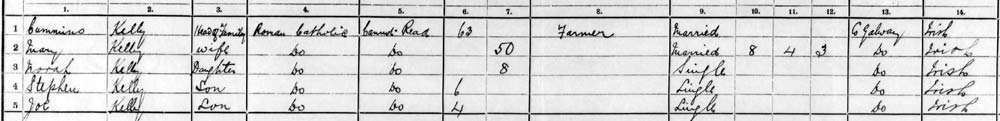 1. 2. 3. 4. 5. 6. 7. 8. 9. 10. 11. 12. 13. 14.
1 Cummins Kelly Head of Family Roman Catholic Cannot Read 63 Farmer Married Co Galway Irish
2 Mary Kelly Wife Do Do 50 Married 8 4 3 Do Irish
3 Norah Kelly Daughter Do Do 8 Single Do Irish
4 Stephen Kelly Son Do Do 6 Single Do Irish
5 Joe Kelly Son Do Do 4 Single Do Irish